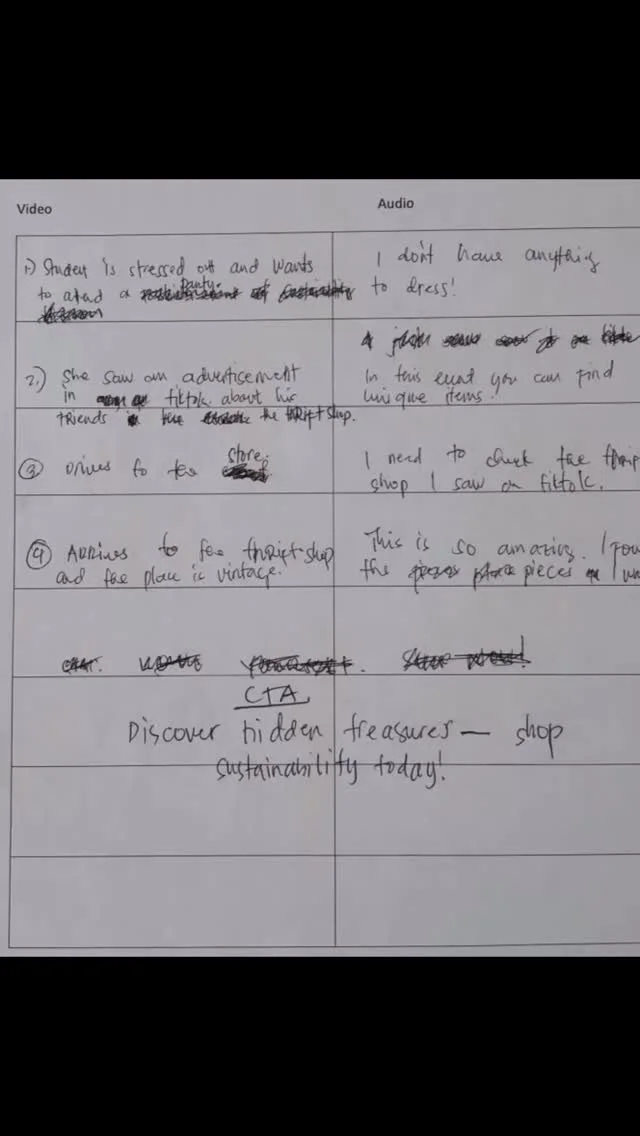 Video
Audio
1.) Student is stressed out and wants
to attend a party.
I don't have anything
to dress!
2.) She saw an advertisement
in tiktok about his
friends the thriftshop.
In this event you can find
unique items.
③ Drives to the store.
I need to check the thrip
shop I saw on tiktok.
④ Arrives to the thriftshop
and the place is vintage.
This is so amazing. I fou
the pieces I
CTA
Discover hidden treasures — shop
sustainability today!